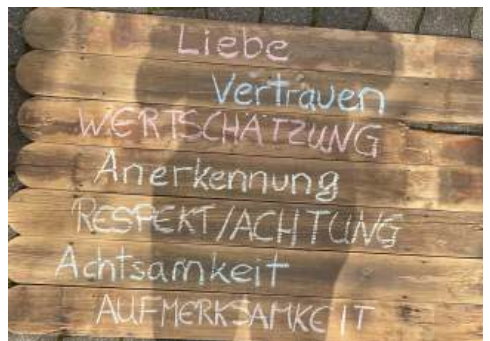 Liebe
Vertrauen
WERTSCHÄTZUNG
Anerkennung
RESPEKT/ACHTUNG
Achtsamkeit
AUFMERKSAMKEIT